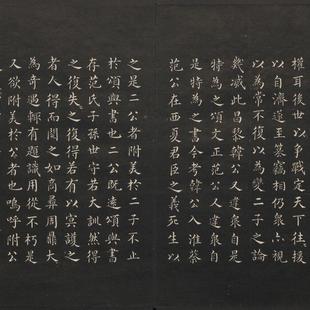 權耳後世以爭戰定天下往〻援
以自濟遂至篡竊相仍衆亦視
以為常不復以為變二子之論
幾滅此昌黎韓公人違衆自是
特為之頌文正范公人違衆自
是特為之書今考韓公入淮蔡
范公在西夏君臣之義死生以
之是二公者附美於二子不止
於頌與書也二公既遠頌與書
存范氏子孫世守若大訓然得
之復失之復得若有以冥護之
者人得而閱之如商彝周鼎大
為奇遇輒有題識用從不朽是
又欲附美於公者也嗚呼附公